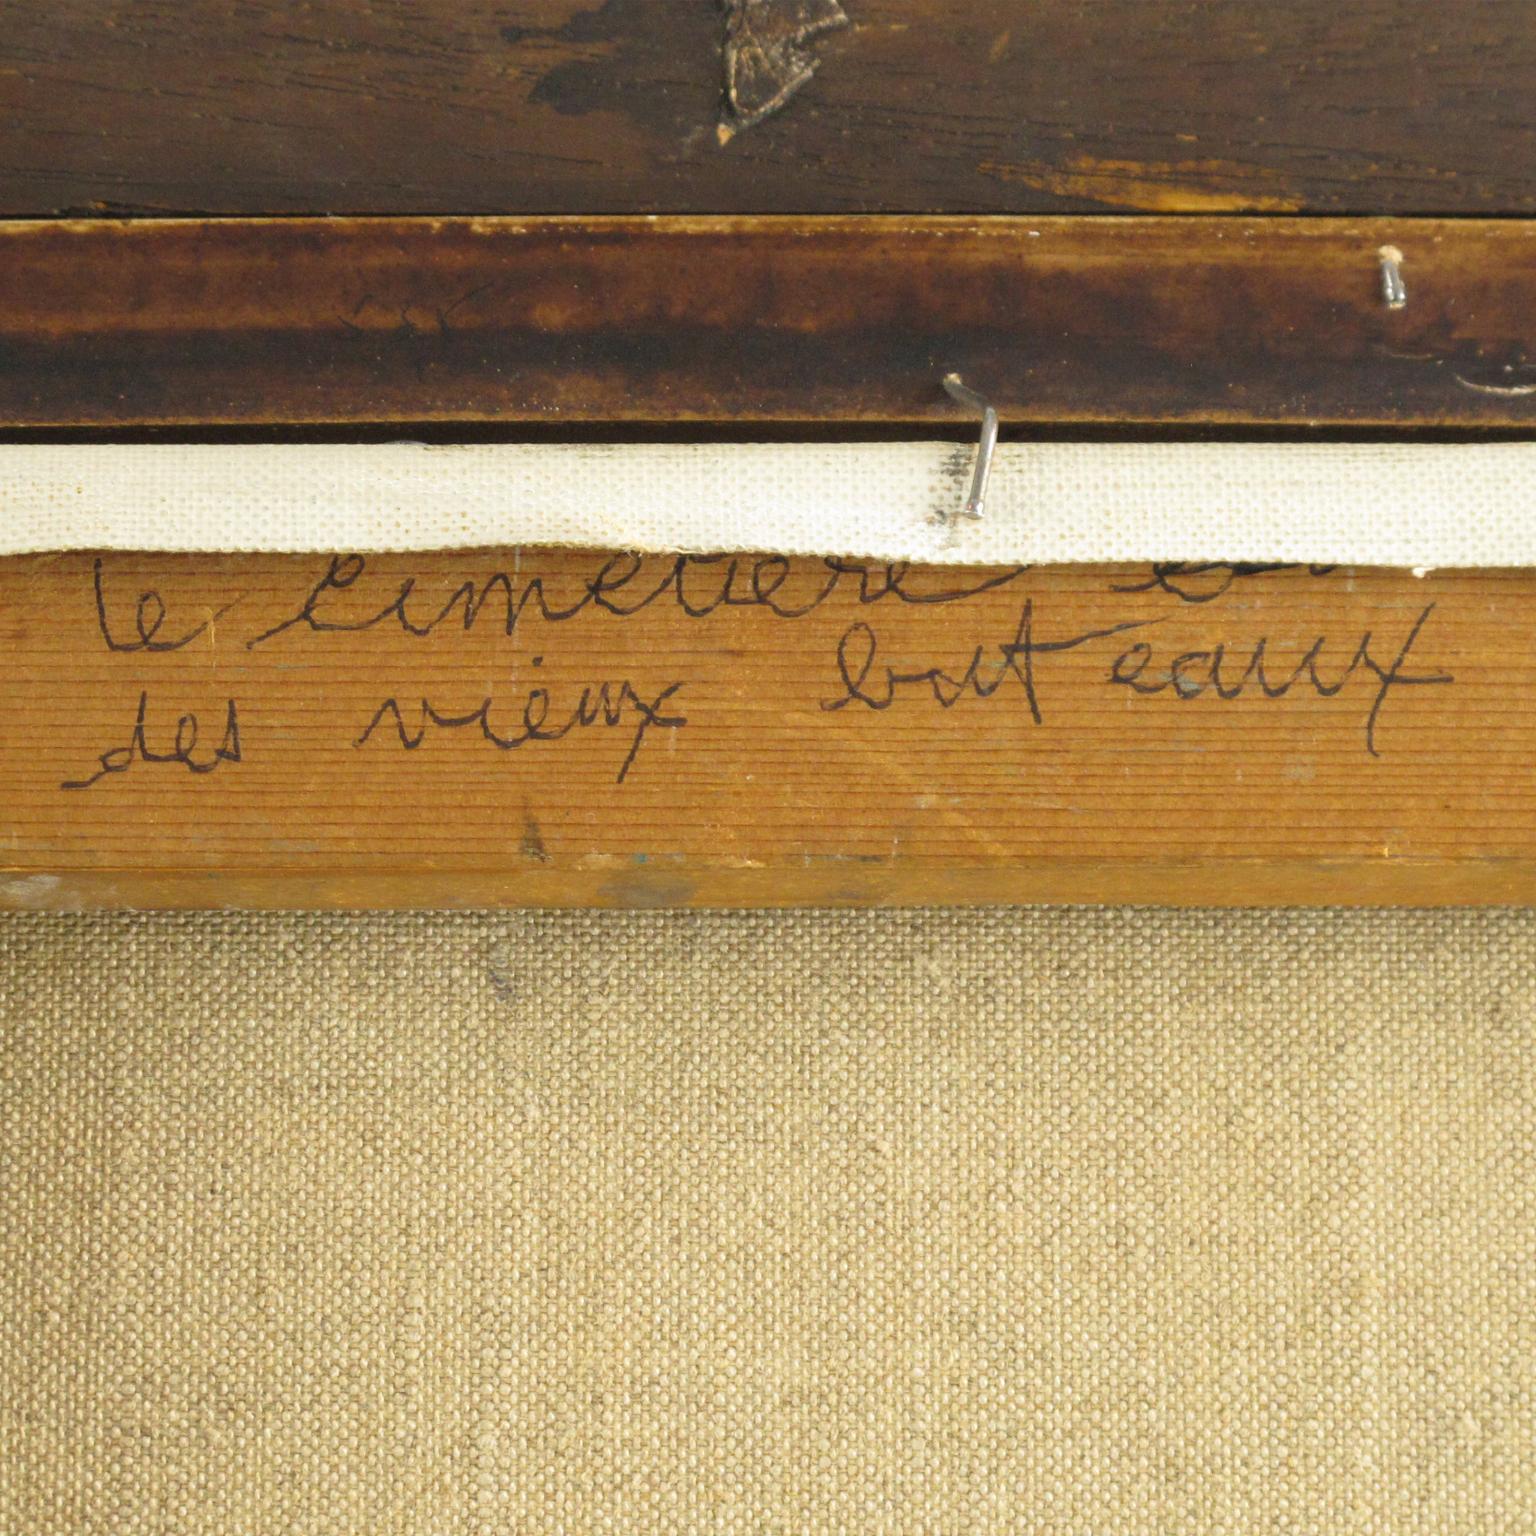 le cimetière
des vieux bateaux